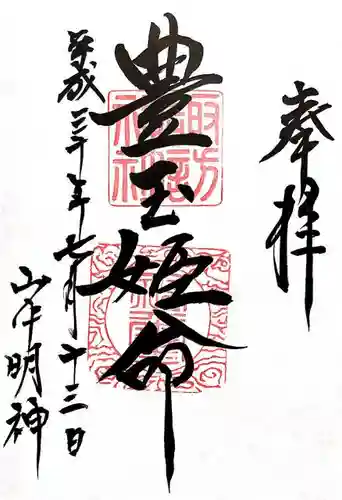 奉拝
豊玉姫命
平成三十年七月十三日
山中明神